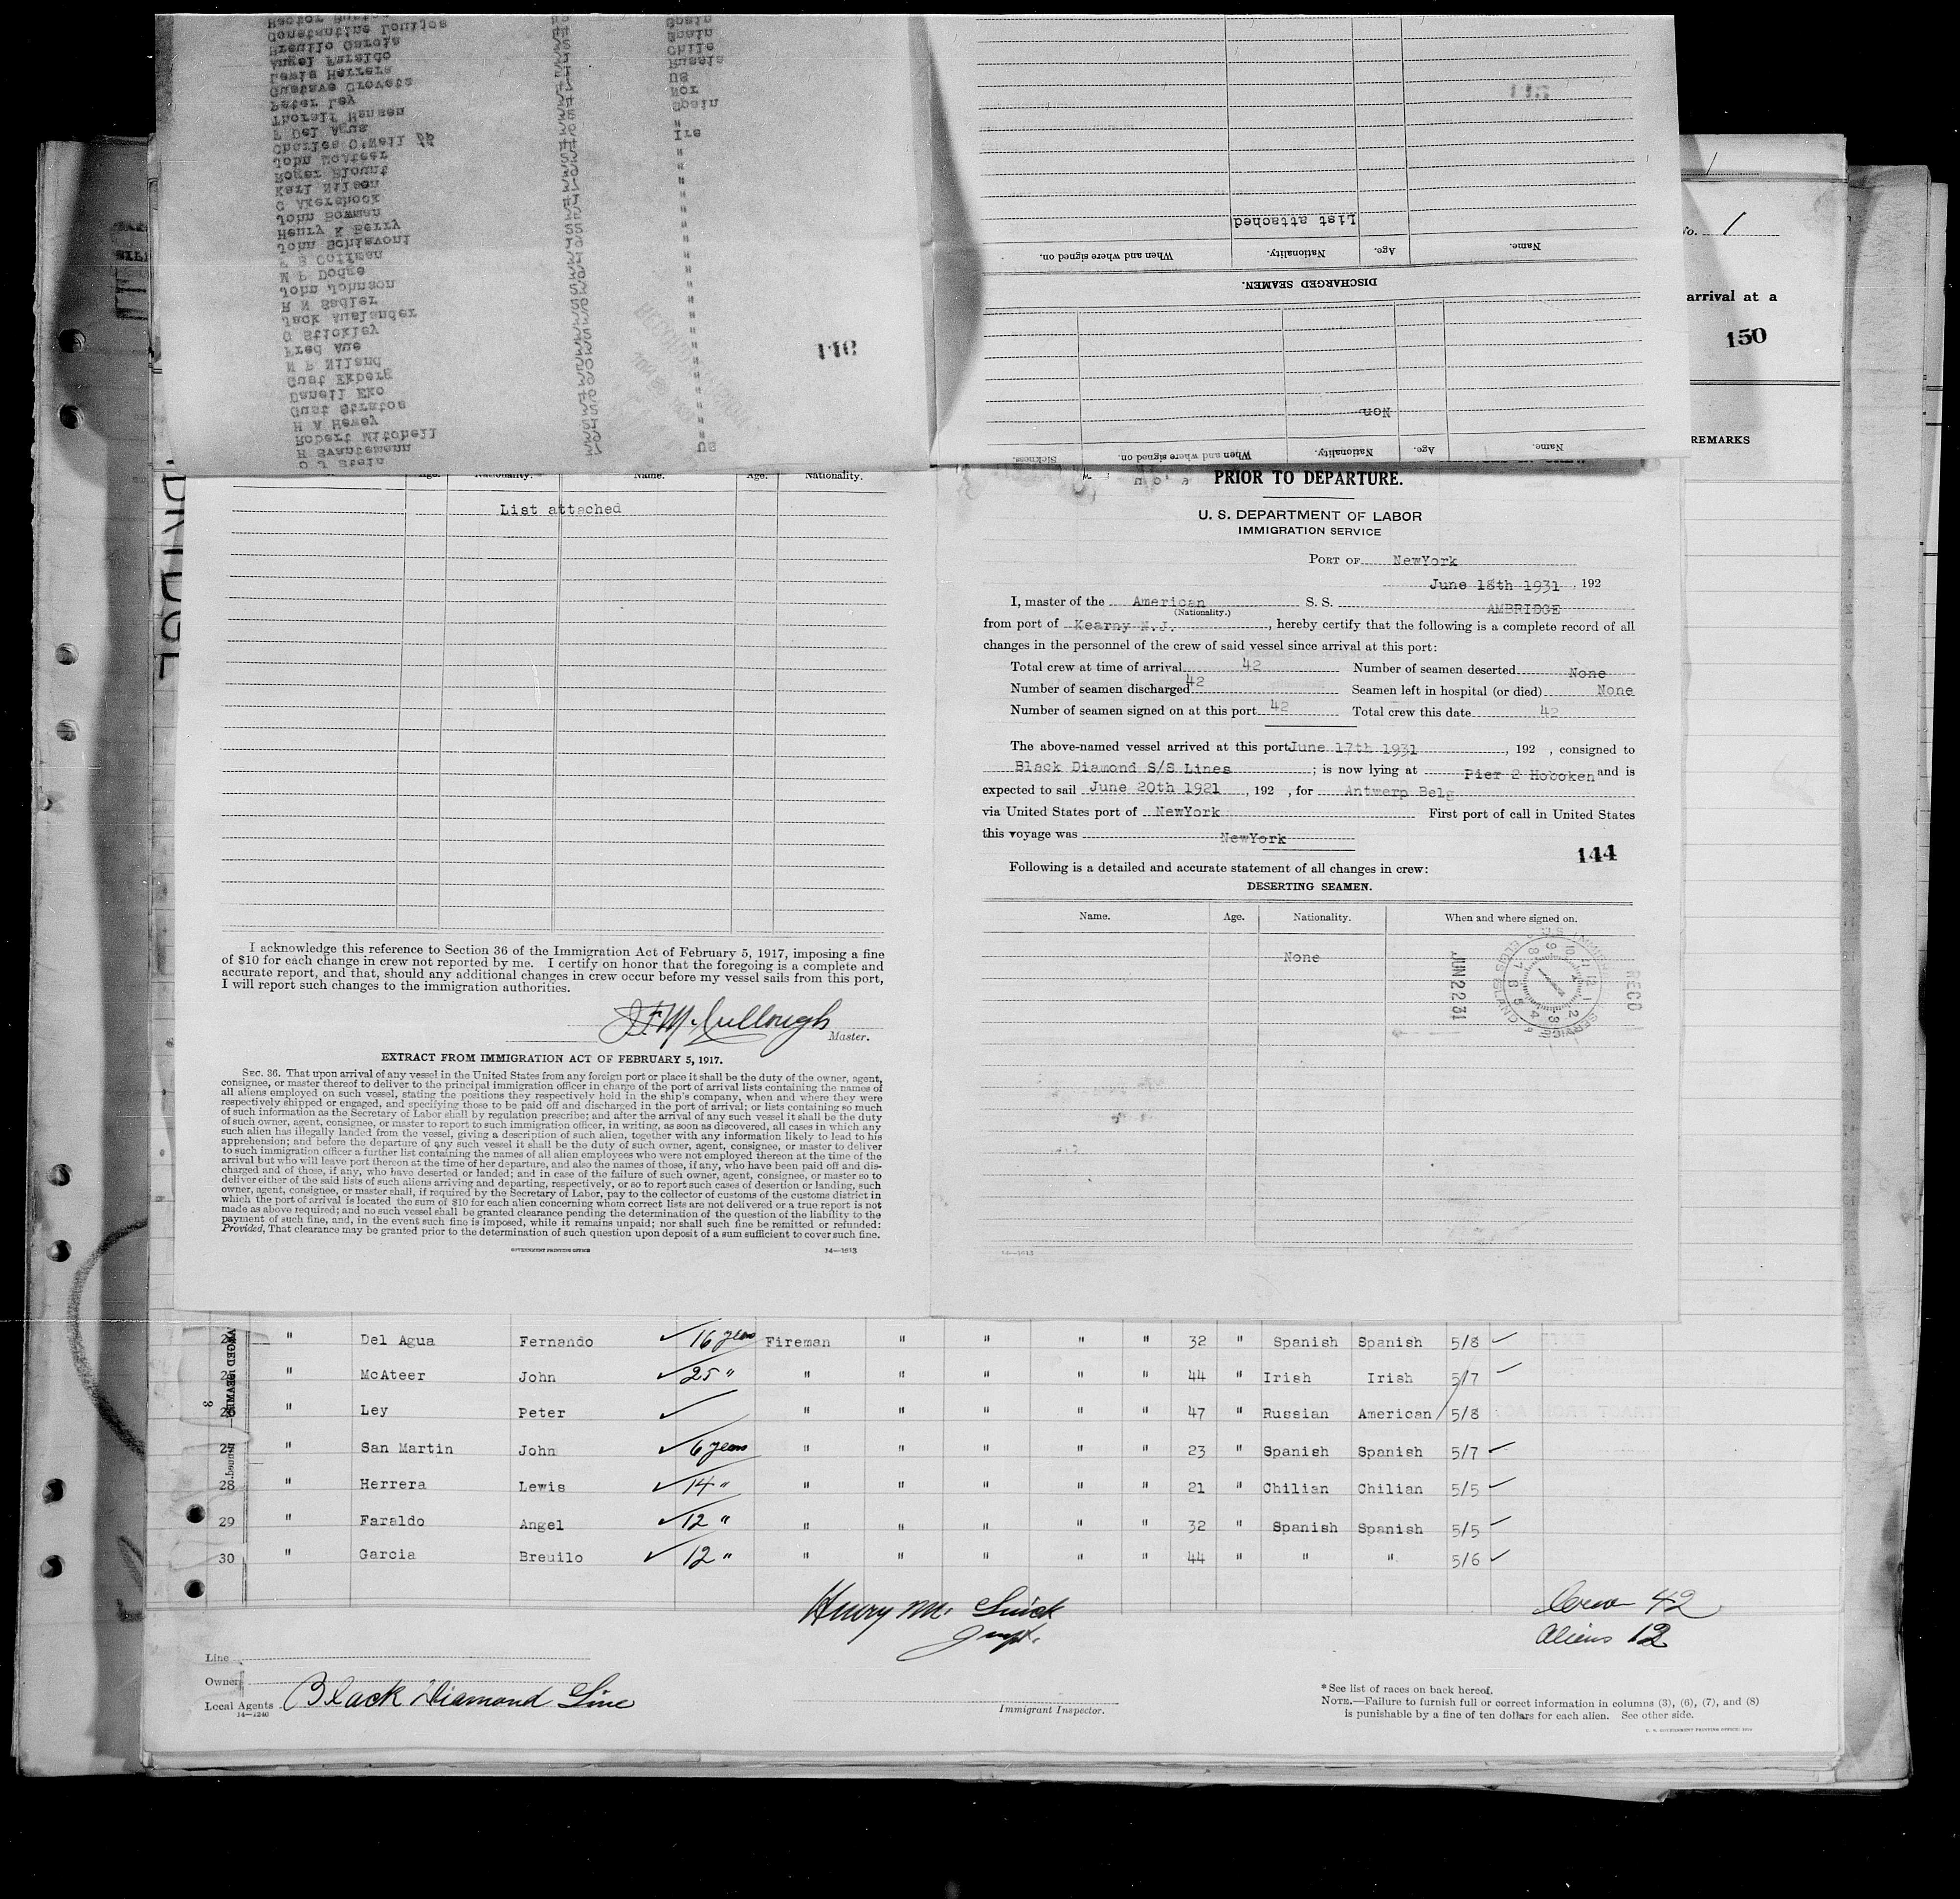 O J Stein
H Svantemann US
Robert Mitchell "
H A Hewey "
Gust Stratos "
Daneil Eko "
Gust Ekberg "
M P Niland "
Fred Aue "
G Stickley "
Jack Auslander "
R N Sadler "
John Johnson "
M P Dodge "
E S Coffman "
John Schiavoni "
Henry K Berry "
John Bowman "
C Akershook "
Karl Nilson "
Roger Blount "
John McAteer "
Charles O'Neil Ire
F Del Agua "
Thoralf Hansen Spain
Peter Ley Nor
Gustave Crovets US
Lewis Herrera Russia
Angel Faraldo Chile
Breuilo Garcia Spain
Constantine Louijos Spain
146
145
List attached
Name. Age. Nationality. When and where signed on.
DISCHARGED SEAMEN.
Non
Name. Age. Nationality. When and where signed on. Sickness.
No. 1
arrival at a
150
REMARKS
Age. Nationality. Name. Age. Nationality.
List attached
I acknowledge this reference to Section 36 of the Immigration Act of February 5, 1917, imposing a fine
of $10 for each change in crew not reported by me. I certify on honor that the foregoing is a complete and
accurate report, and that, should any additional changes in crew occur before my vessel sails from this port,
I will report such changes to the immigration authorities.
J F McCullough
Master.
EXTRACT FROM IMMIGRATION ACT OF FEBRUARY 5, 1917.
SEC. 36. That upon arrival of any vessel in the United States from any foreign port or place it shall be the duty of the owner, agent,
consignee, or master thereof to deliver to the principal immigration officer in charge of the port of arrival lists containing the names of
all aliens employed on such vessel, stating the positions they respectively hold in the ship's company, when and where they were
respectively shipped or engaged, and specifying those to be paid off and discharged in the port of arrival; or lists containing so much
of such information as the Secretary of Labor shall by regulation prescribe; and after the arrival of any such vessel it shall be the duty
of such owner, agent, consignee, or master to report to such immigration officer, in writing, as soon as discovered, all cases in which any
such alien has illegally landed from the vessel, giving a description of such alien, together with any information likely to lead to his
apprehension; and before the departure of any such vessel it shall be the duty of such owner, agent, consignee, or master to deliver
to such immigration officer a further list containing the names of all alien employees who were not employed thereon at the time of the
arrival but who will leave port thereon at the time of her departure, and also the names of those, if any, who have been paid off and dis-
charged and of those, if any, who have deserted or landed; and in case of the failure of such owner, agent, consignee, or master so to
deliver either of the said lists of such aliens arriving and departing, respectively, or so to report such cases of desertion or landing, such
owner, agent, consignee, or master shall, if required by the Secretary of Labor, pay to the collector of customs of the customs district in
which the port of arrival is located the sum of $10 for each alien concerning whom correct lists are not delivered or a true report is not
made as above required; and no such vessel shall be granted clearance pending the determination of the question of the liability to the
payment of such fine, and, in the event such fine is imposed, while it remains unpaid; nor shall such fine be remitted or refunded:
Provided, That clearance may be granted prior to the determination of such question upon deposit of a sum sufficient to cover such fine.
GOVERNMENT PRINTING OFFICE 14—1613
PRIOR TO DEPARTURE.
U. S. DEPARTMENT OF LABOR
IMMIGRATION SERVICE
PORT OF NewYork
June 18th 1931, 192
I, master of the American S. S. AMBRIDGE
(Nationality.)
from port of Kearny N.J., hereby certify that the following is a complete record of all
changes in the personnel of the crew of said vessel since arrival at this port:
Total crew at time of arrival 42 Number of seamen deserted None
Number of seamen discharged 42 Seamen left in hospital (or died) None
Number of seamen signed on at this port 42 Total crew this date 42
The above-named vessel arrived at this port June 17th 1931, 192 , consigned to
Black Diamond S/S Lines ; is now lying at Pier 2 Hoboken and is
expected to sail June 20th 1921, 192 , for Antwerp Belg
via United States port of NewYork First port of call in United States
this voyage was NewYork
144
Following is a detailed and accurate statement of all changes in crew:
DESERTING SEAMEN.
Name. Age. Nationality. When and where signed on.
None
JUN 22 31
RECD
14—1613
" Del Agua Fernando ✓ 16 years Fireman " " " " 32 " Spanish Spanish 5/8 ✓
" McAteer John ✓ 25 " " " " " " 44 " Irish Irish 5/7 ✓
26 " Ley Peter ✓ " " " " " 47 " Russian American 5/8
27 " San Martin John ✓ 6 years " " " " " 23 " Spanish Spanish 5/7 ✓
28 " Herrera Lewis ✓ 14 " " " " " " 21 " Chilian Chilian 5/5 ✓
29 " Faraldo Angel ✓ 12 " " " " " " 32 " Spanish Spanish 5/5 ✓
30 " Garcia Breuilo ✓ 12 " " " " " " 44 " " " 5/6 ✓
Crew 42
Aliens 12
Line
Owner
Local Agents Black Diamond Line
14—1240
Immigrant Inspector.
* See list of races on back hereof.
NOTE.—Failure to furnish full or correct information in columns (3), (6), (7), and (8)
is punishable by a fine of ten dollars for each alien. See other side.